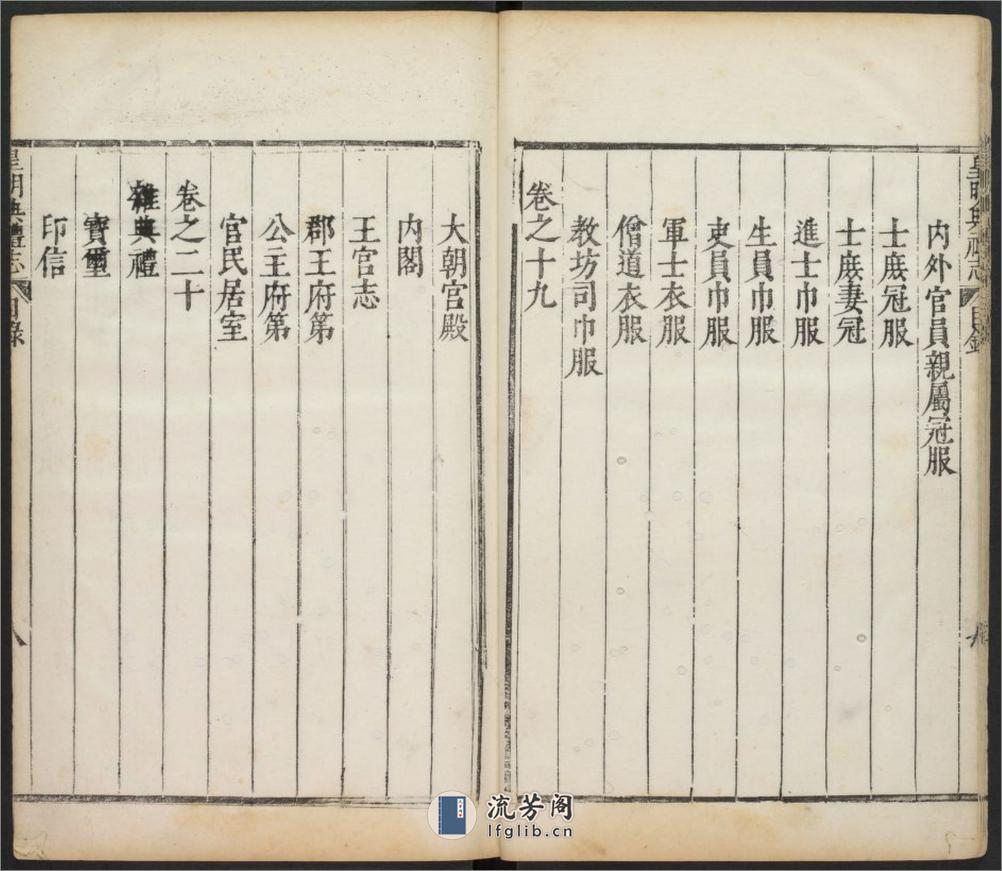 皇明典禮志 目錄
內外官員親屬冠服
士庶冠服
士庶妻冠
進士巾服
生員巾服
吏員巾服
軍士衣服
僧道衣服
教坊司巾服
卷之十九
大朝宮殿
內閣
王宮志
郡王府第
公王府第
官民居室
卷之二十
雜典禮
寶璽
印信
皇明典禮志 目錄
八
流芳阁
lfglib.cn